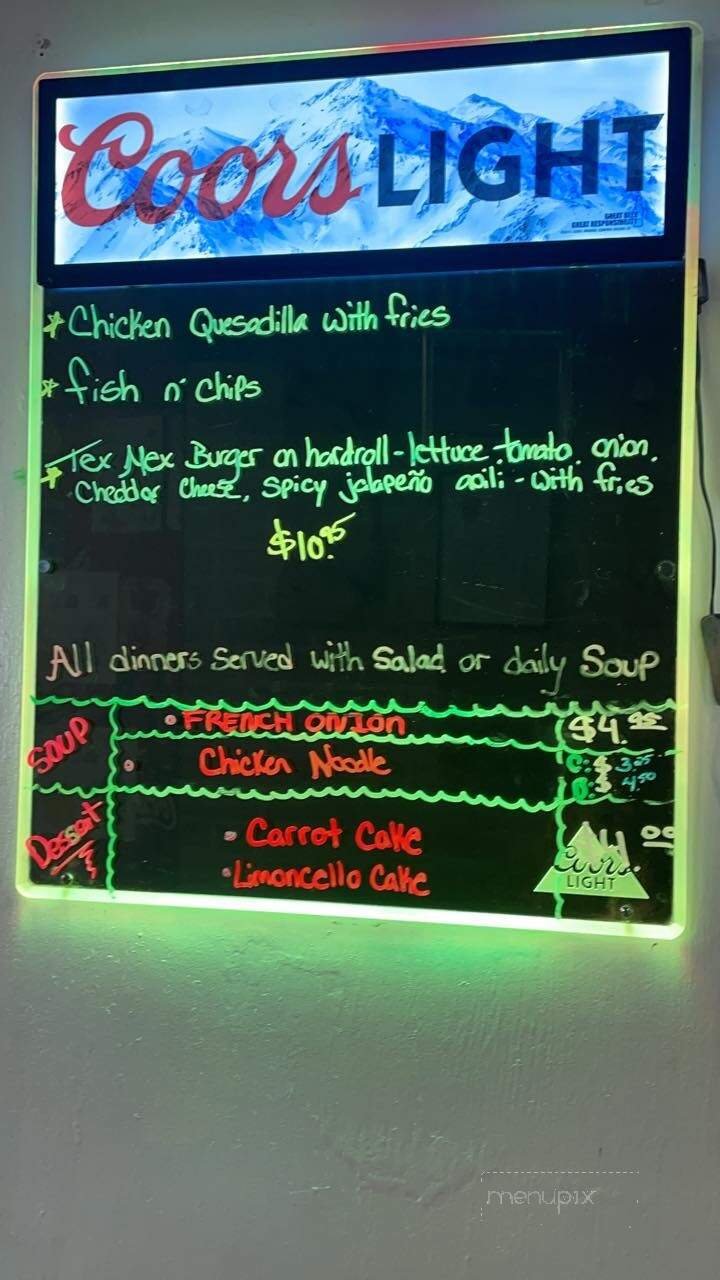 Coors LIGHT
GREAT BEER
GREAT RESPONSIBILITY
* Chicken Quesadilla with fries
* fish n' chips
* Tex Mex Burger on hardroll - lettuce tomato. onion.
Cheddar Cheese, spicy jalapeño aoili - with fries
$10.95
All dinners Served with Salad or daily Soup
SOUP
• FRENCH ONION $4.95
• Chicken Noodle C: $ 3.25
B: $ 4.50
Dessert
• Carrot Cake 00
• Limoncello Cake
Coors
LIGHT
menupix